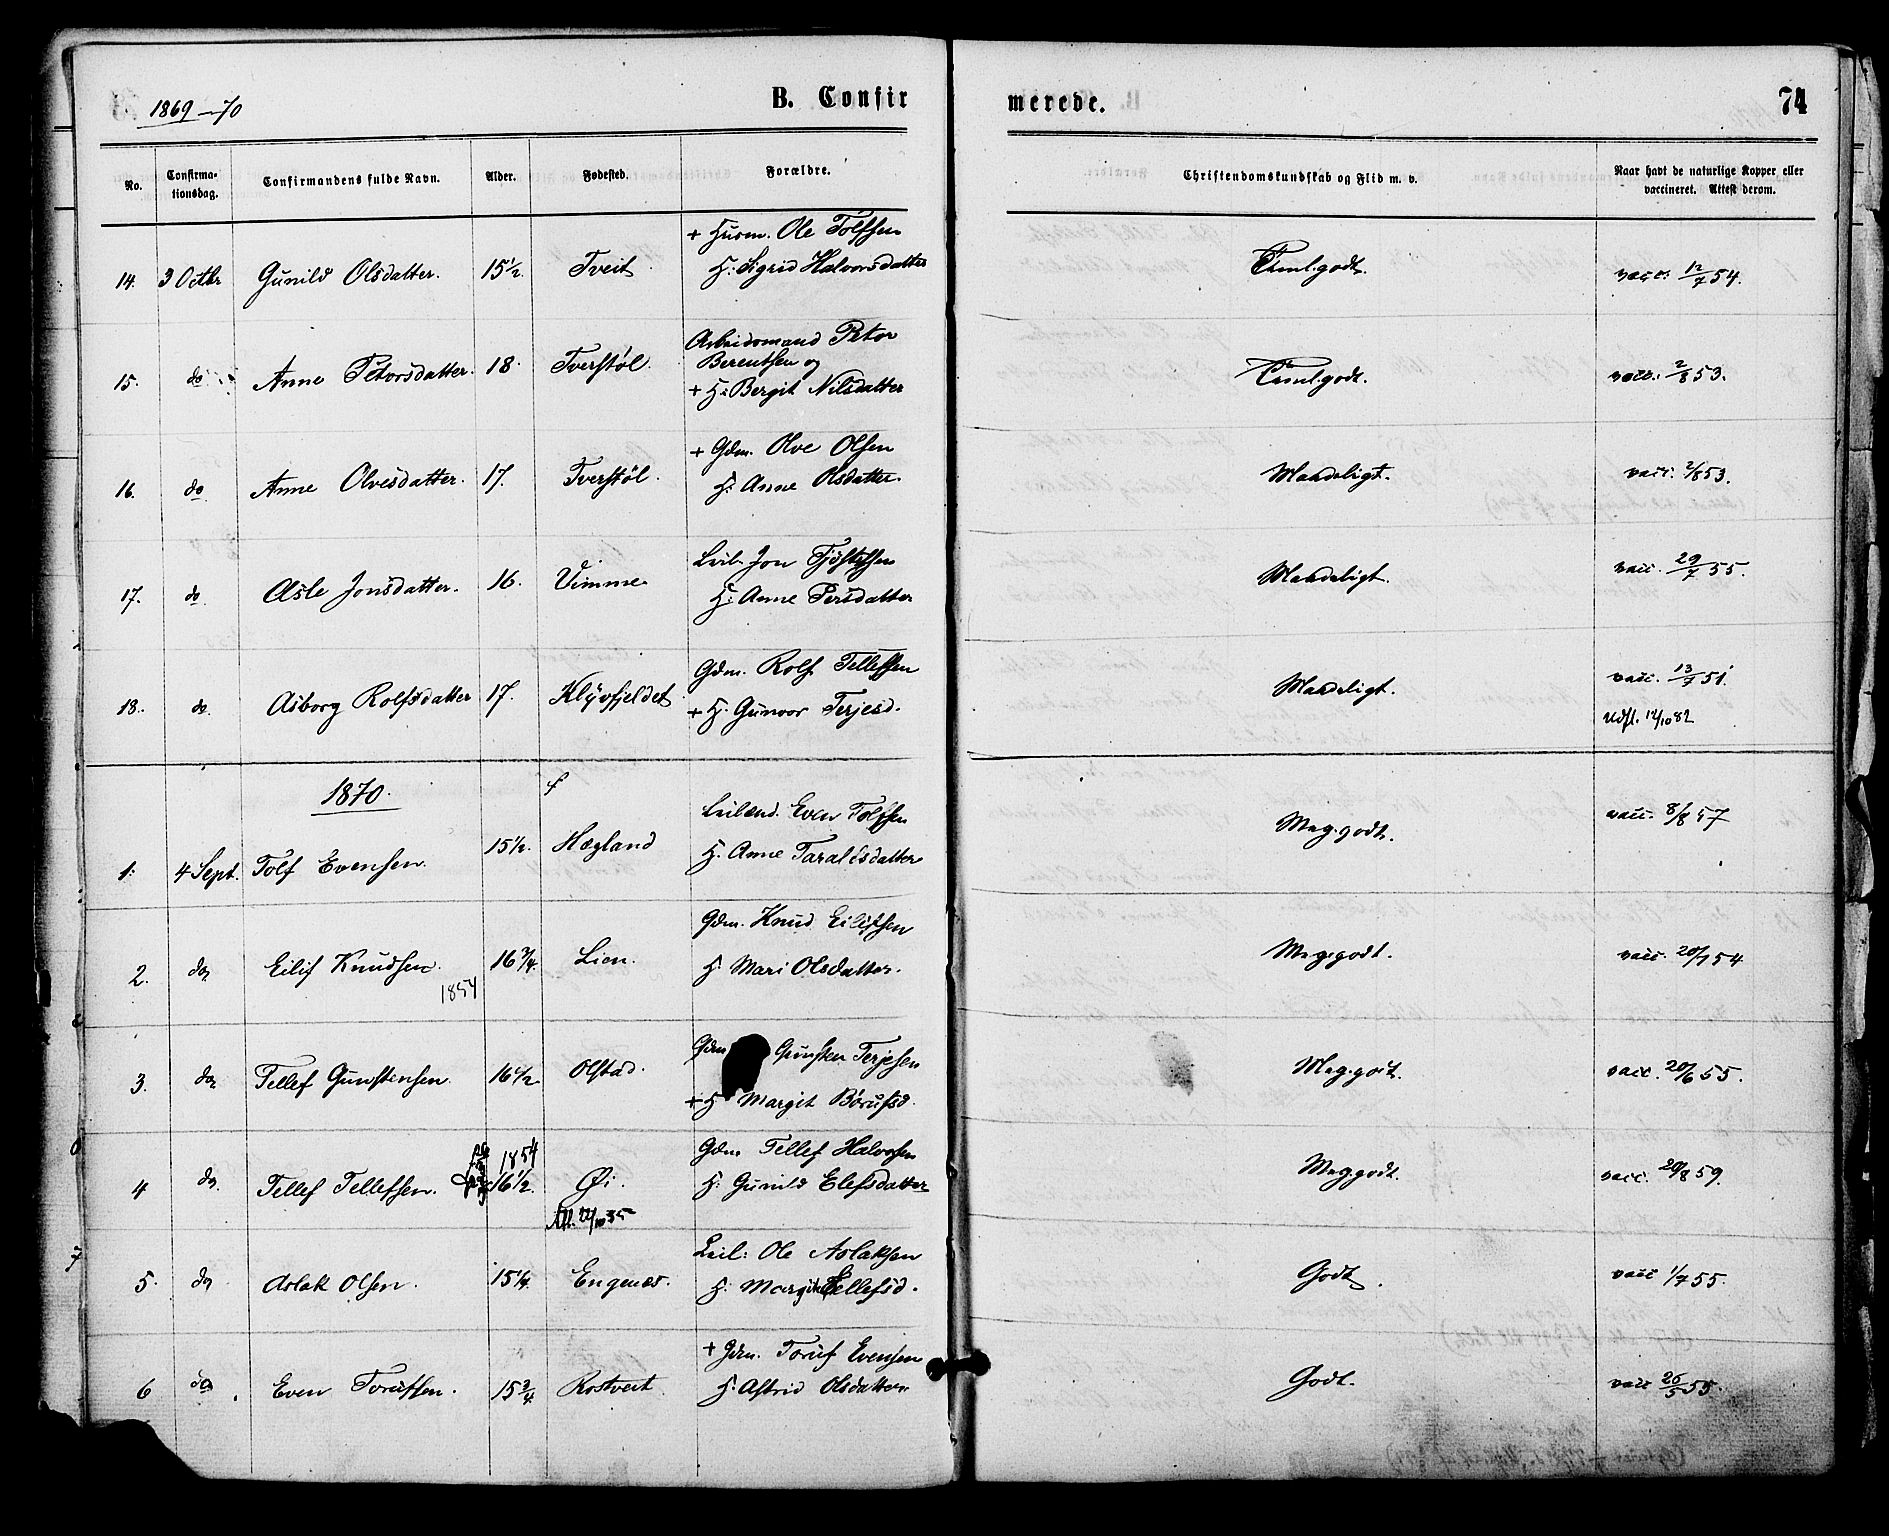 1869–70
B. Confirmerede.
74
No.
Confirmationsdag.
Confirmandens fulde Navn.
Alder.
Fødested.
Forældre.
Christendomskundskab og Flid m. v.
Naar havt de naturlige Kopper eller vaccineret. Attest derom.
14. 3 Octbr Gunild Olsdatter. 15½ Tveit + Husm. Ole Tolfsen H: Sigrid Halvorsdatter Teml.godt. vacc. 12/7 54.
15. do Anne Petersdatter. 18. Tverstøl. Arbeidsmand Peter Berentsen og + H: Bergit Nilsdatter Teml.godt. vacc. 2/8 53.
16. do Anne Olvesdatter. 17. Tverstøl. + Gdm. Olve Olsen H: Anne Olsdatter. Maadeligt. vacc. 2/8 53.
17. do Asle Jonsdatter. 16. Vimme Leil. Jon Tjøstelsen H: Anne Persdatter Maadeligt. vacc. 29/7 55.
18. do Asborg Rolfsdatter 17. Kløvfjeldet Gdm. Rolf Tellefsen + H. Gunvor Terjesd. Maadeligt. vacc. 13/7 51.
Udfl. 12/10 82
1870.
1. 4 Sept. Tolf Evensen. 15½. Hægland Leilænd. Even Tolfsen H. Anne Taraldsdatter Meg.godt. vacc. 8/8 57
2. do Eilif Knudsen. 1854 16¾. Lien. Gdm. Knud Eilifsen H Mari Olsdatter. Meg.godt. vacc. 20/7 54
3. do Tellef Gunstensen. 16½ Olstad. Gdm Gunsten Terjesen + H Margit Børufsd. Meg.godt. vacc. 20/6 55.
4 do Tellef Tellefsen. 1854 16½. Øi. Gdm Tellef Halvorsen H. Gunild Elefsdatter Meg.godt. vacc. 20/8 59.
Att. 22/10 35
5. do Aslak Olsen. 15¼. Engenæs. Leil: Ole Aslaksen H. Margit Tellefsd. Godt. vacc 1/7 55.
6 do Even Torufsen. 15¾. Rostveit + Gdm. Toruf Evensen H. Astrid Olsdatter Godt. vacc 26/5 55.